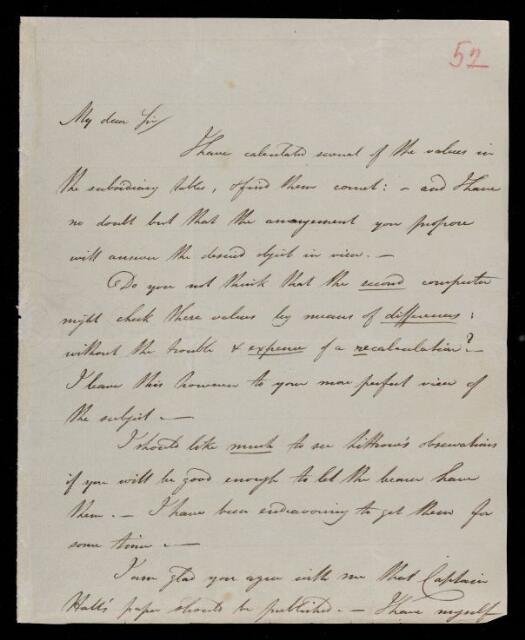 52
My dear Sir,
I have calculated several of the values in
the subsidiary tables, & find them correct: – and I have
no doubt but that the arrangement you propose
will answer the desired object in view. —
Do you not think that the second computer
might check these values by means of differences;
without the trouble & expence of a recalculation? –
I leave this however to your more perfect view of
the subject. —
I should like much to see Littrow's observations
if you will be good enough to let the bearer have
them. – I have been endeavouring to get them for
some time. —
I am glad you agree with me that Captain
Hall's paper should be published. – I have myself